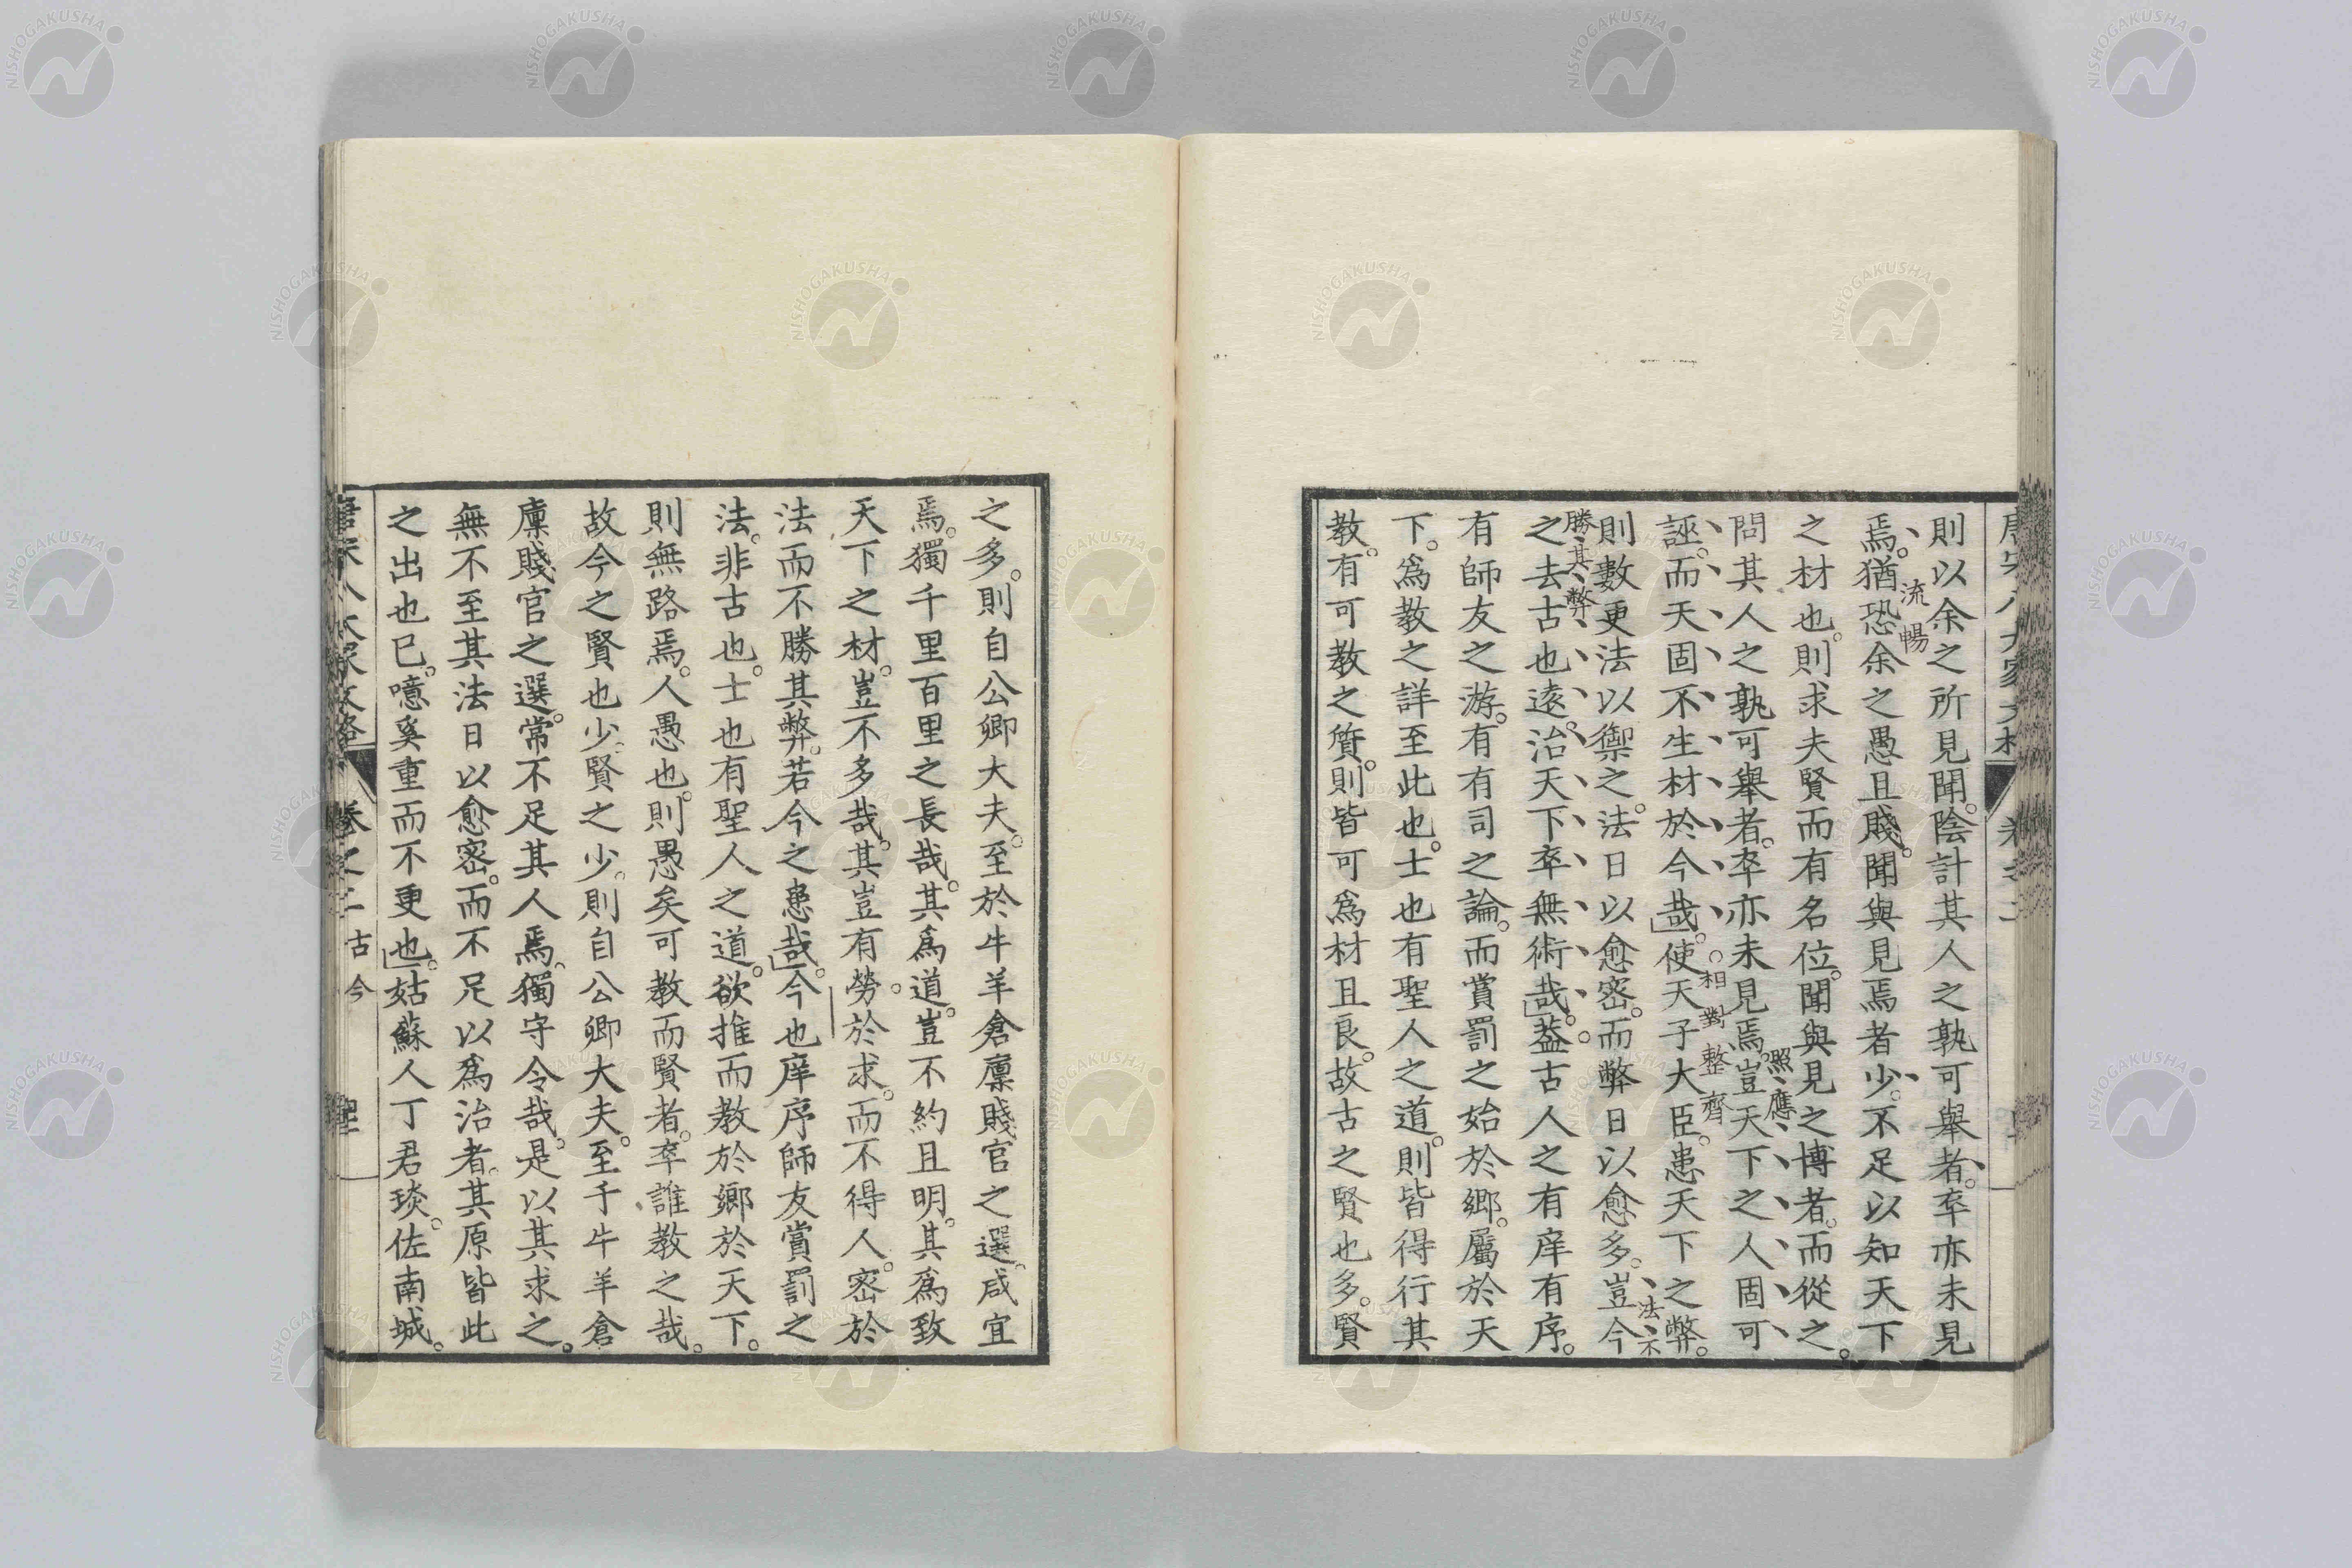 則以余之所見聞。陰計其人之孰可舉者。卒亦未見
焉。猶恐余之愚且賤。聞與見焉者少。不足以知天下
流暢
之材也。則求夫賢而有名位。聞與見之博者。而從之。
問其人之孰可舉者。卒亦未見焉。豈天下之人固可
照應
誣。而天固不生材於今哉。使天子大臣。患天下之弊。
相對整齊
則數更法以禦之。法日以愈密。而弊日以愈多。豈今
法不
勝其弊
之去古也遠。治天下卒無術哉。葢古人之有庠有序。
有師友之游。有有司之論。而賞罰之始於鄉。屬於天
下。爲教之詳至此也。士也有聖人之道。則皆得行其
教。有可教之質。則皆可爲材且良。故古之賢也多。賢
之多。則自公卿大夫。至於牛羊倉廩賤官之選。咸宜
焉。獨千里百里之長哉。其爲道。豈不約且明。其爲致
天下之材。豈不多哉。其豈有勞於求。而不得人。密於
法而不勝其弊。若今之患哉。今也庠序師友賞罰之
法。非古也。士也有聖人之道。欲推而教於鄉於天下。
則無路焉。人愚也。則愚矣可教而賢者。卒誰教之哉。
故今之賢也少。賢之少。則自公卿大夫。至千牛羊倉
廩賤官之選。常不足其人焉。獨守令哉。是以其求之。
無不至其法日以愈密。而不足以爲治者。其原皆此
之出也已。噫奚重而不更也。姑蘇人丁君琰。佐南城。
卷之二 古今